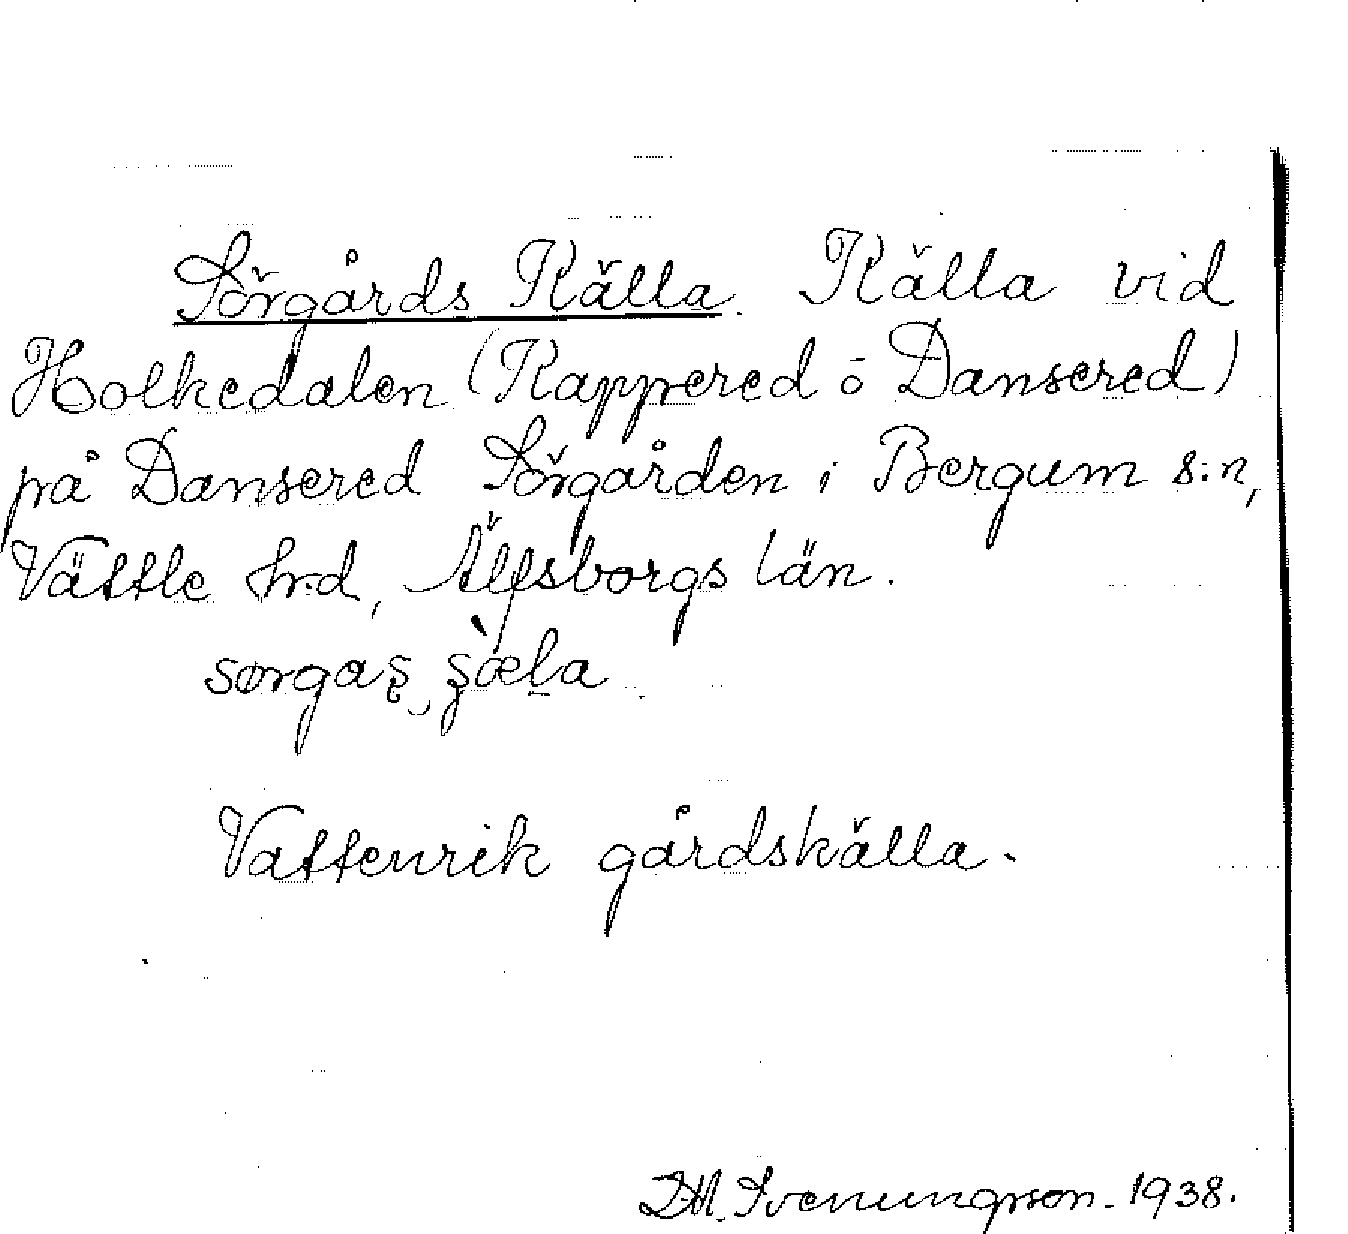 Sörgårds Källa. Källa vid
Holkedalen (Rappered ō Dansered)
på Dansered Sörgården i Bergum s:n,
Vättle hrd, Älfsborgs län.
Vattenrik gårdskälla.
D.H. Svenungsson. 1938.